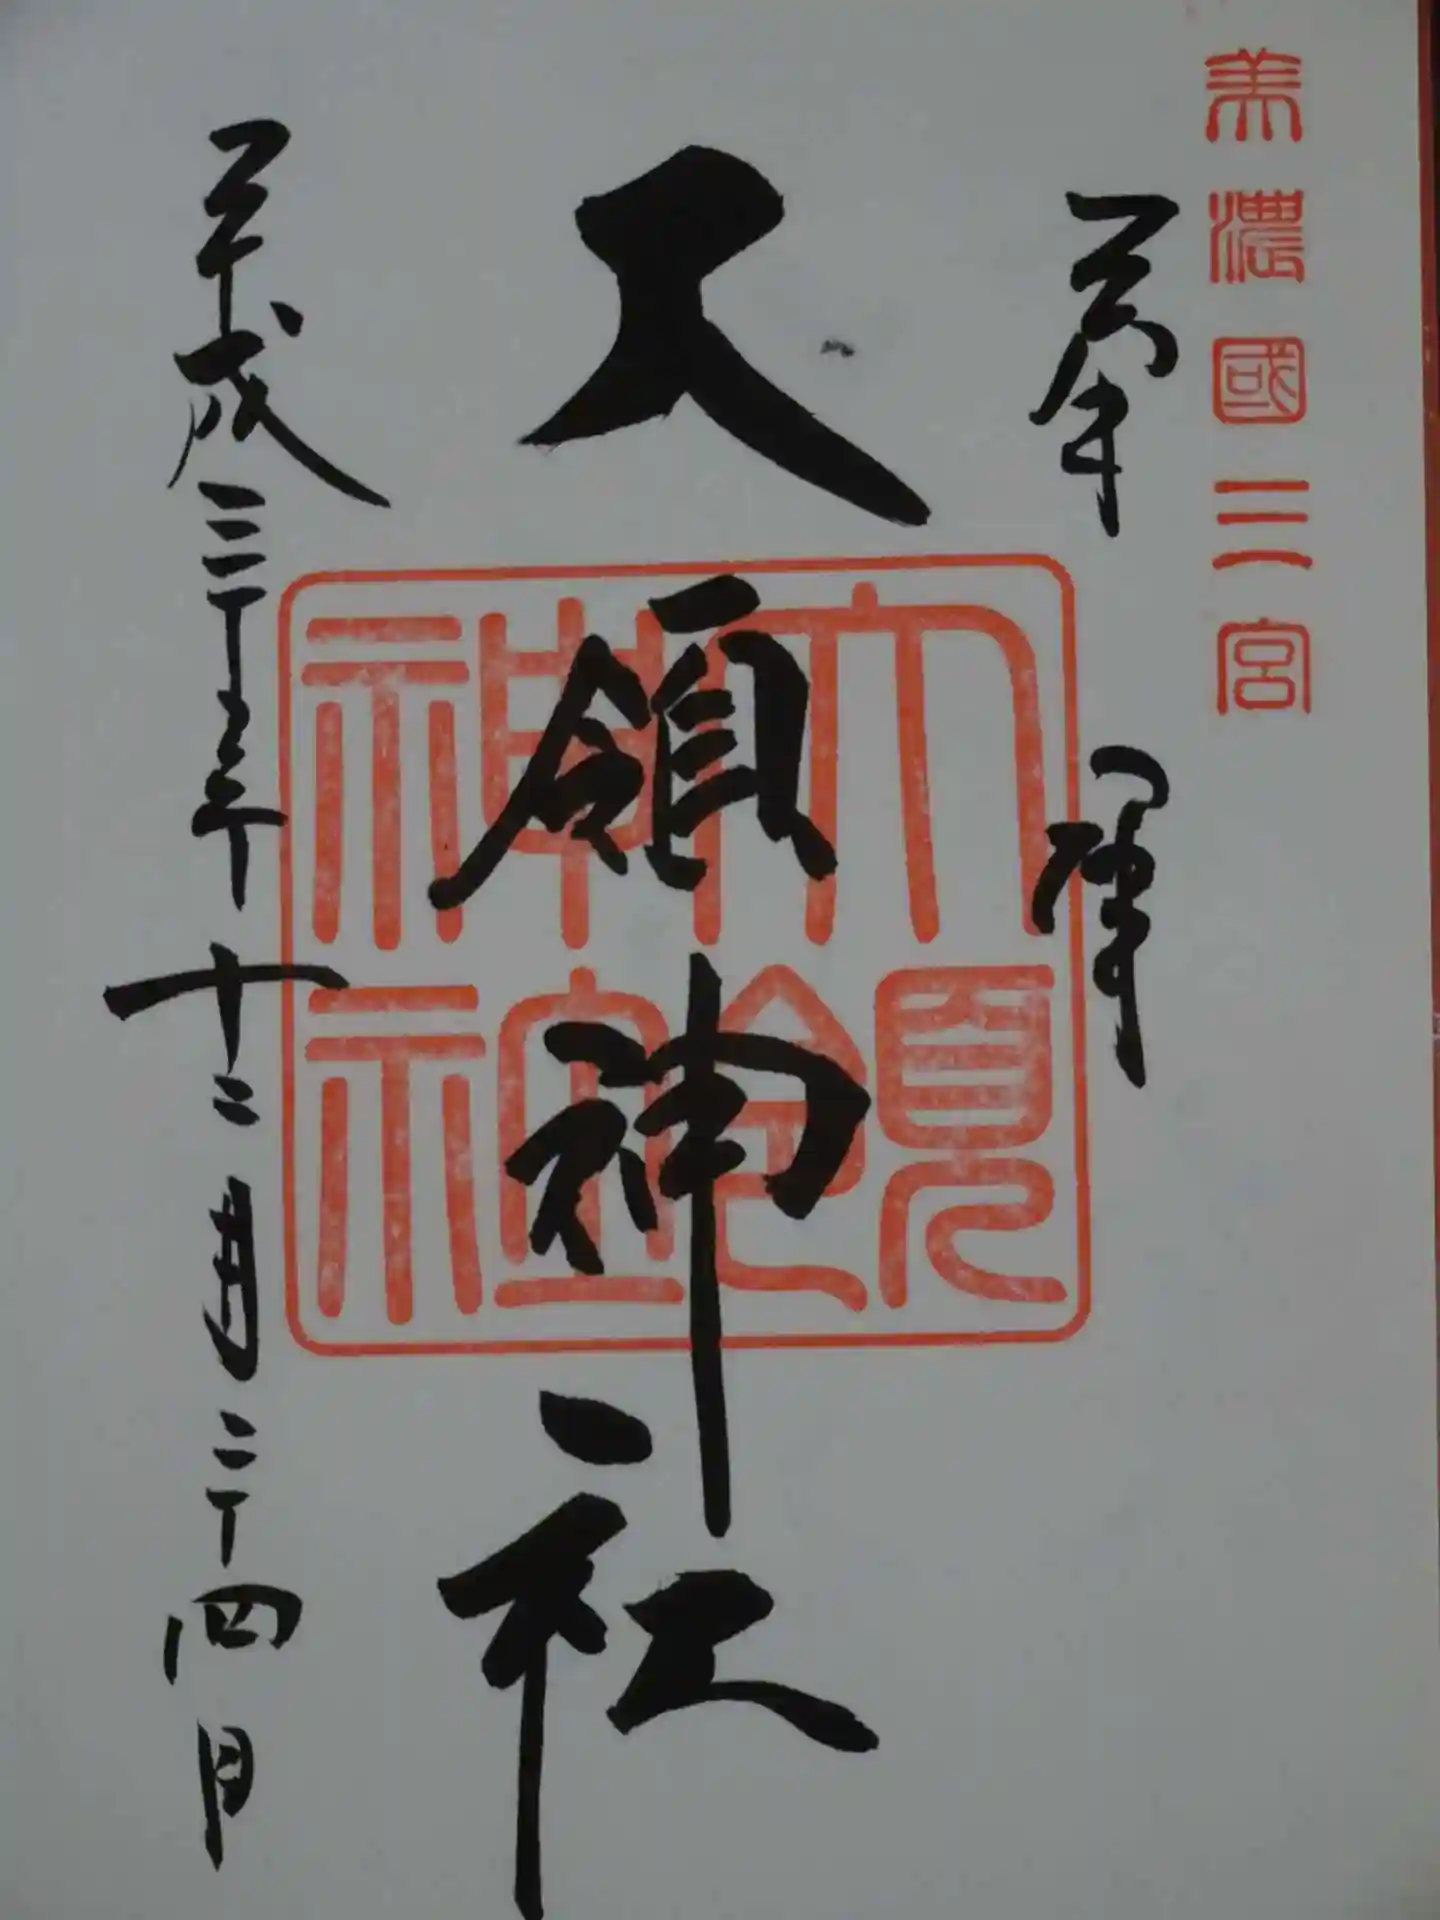 美濃國三宮
奉拝
大領神社
大領神社
平成二十五年十二月二十四日